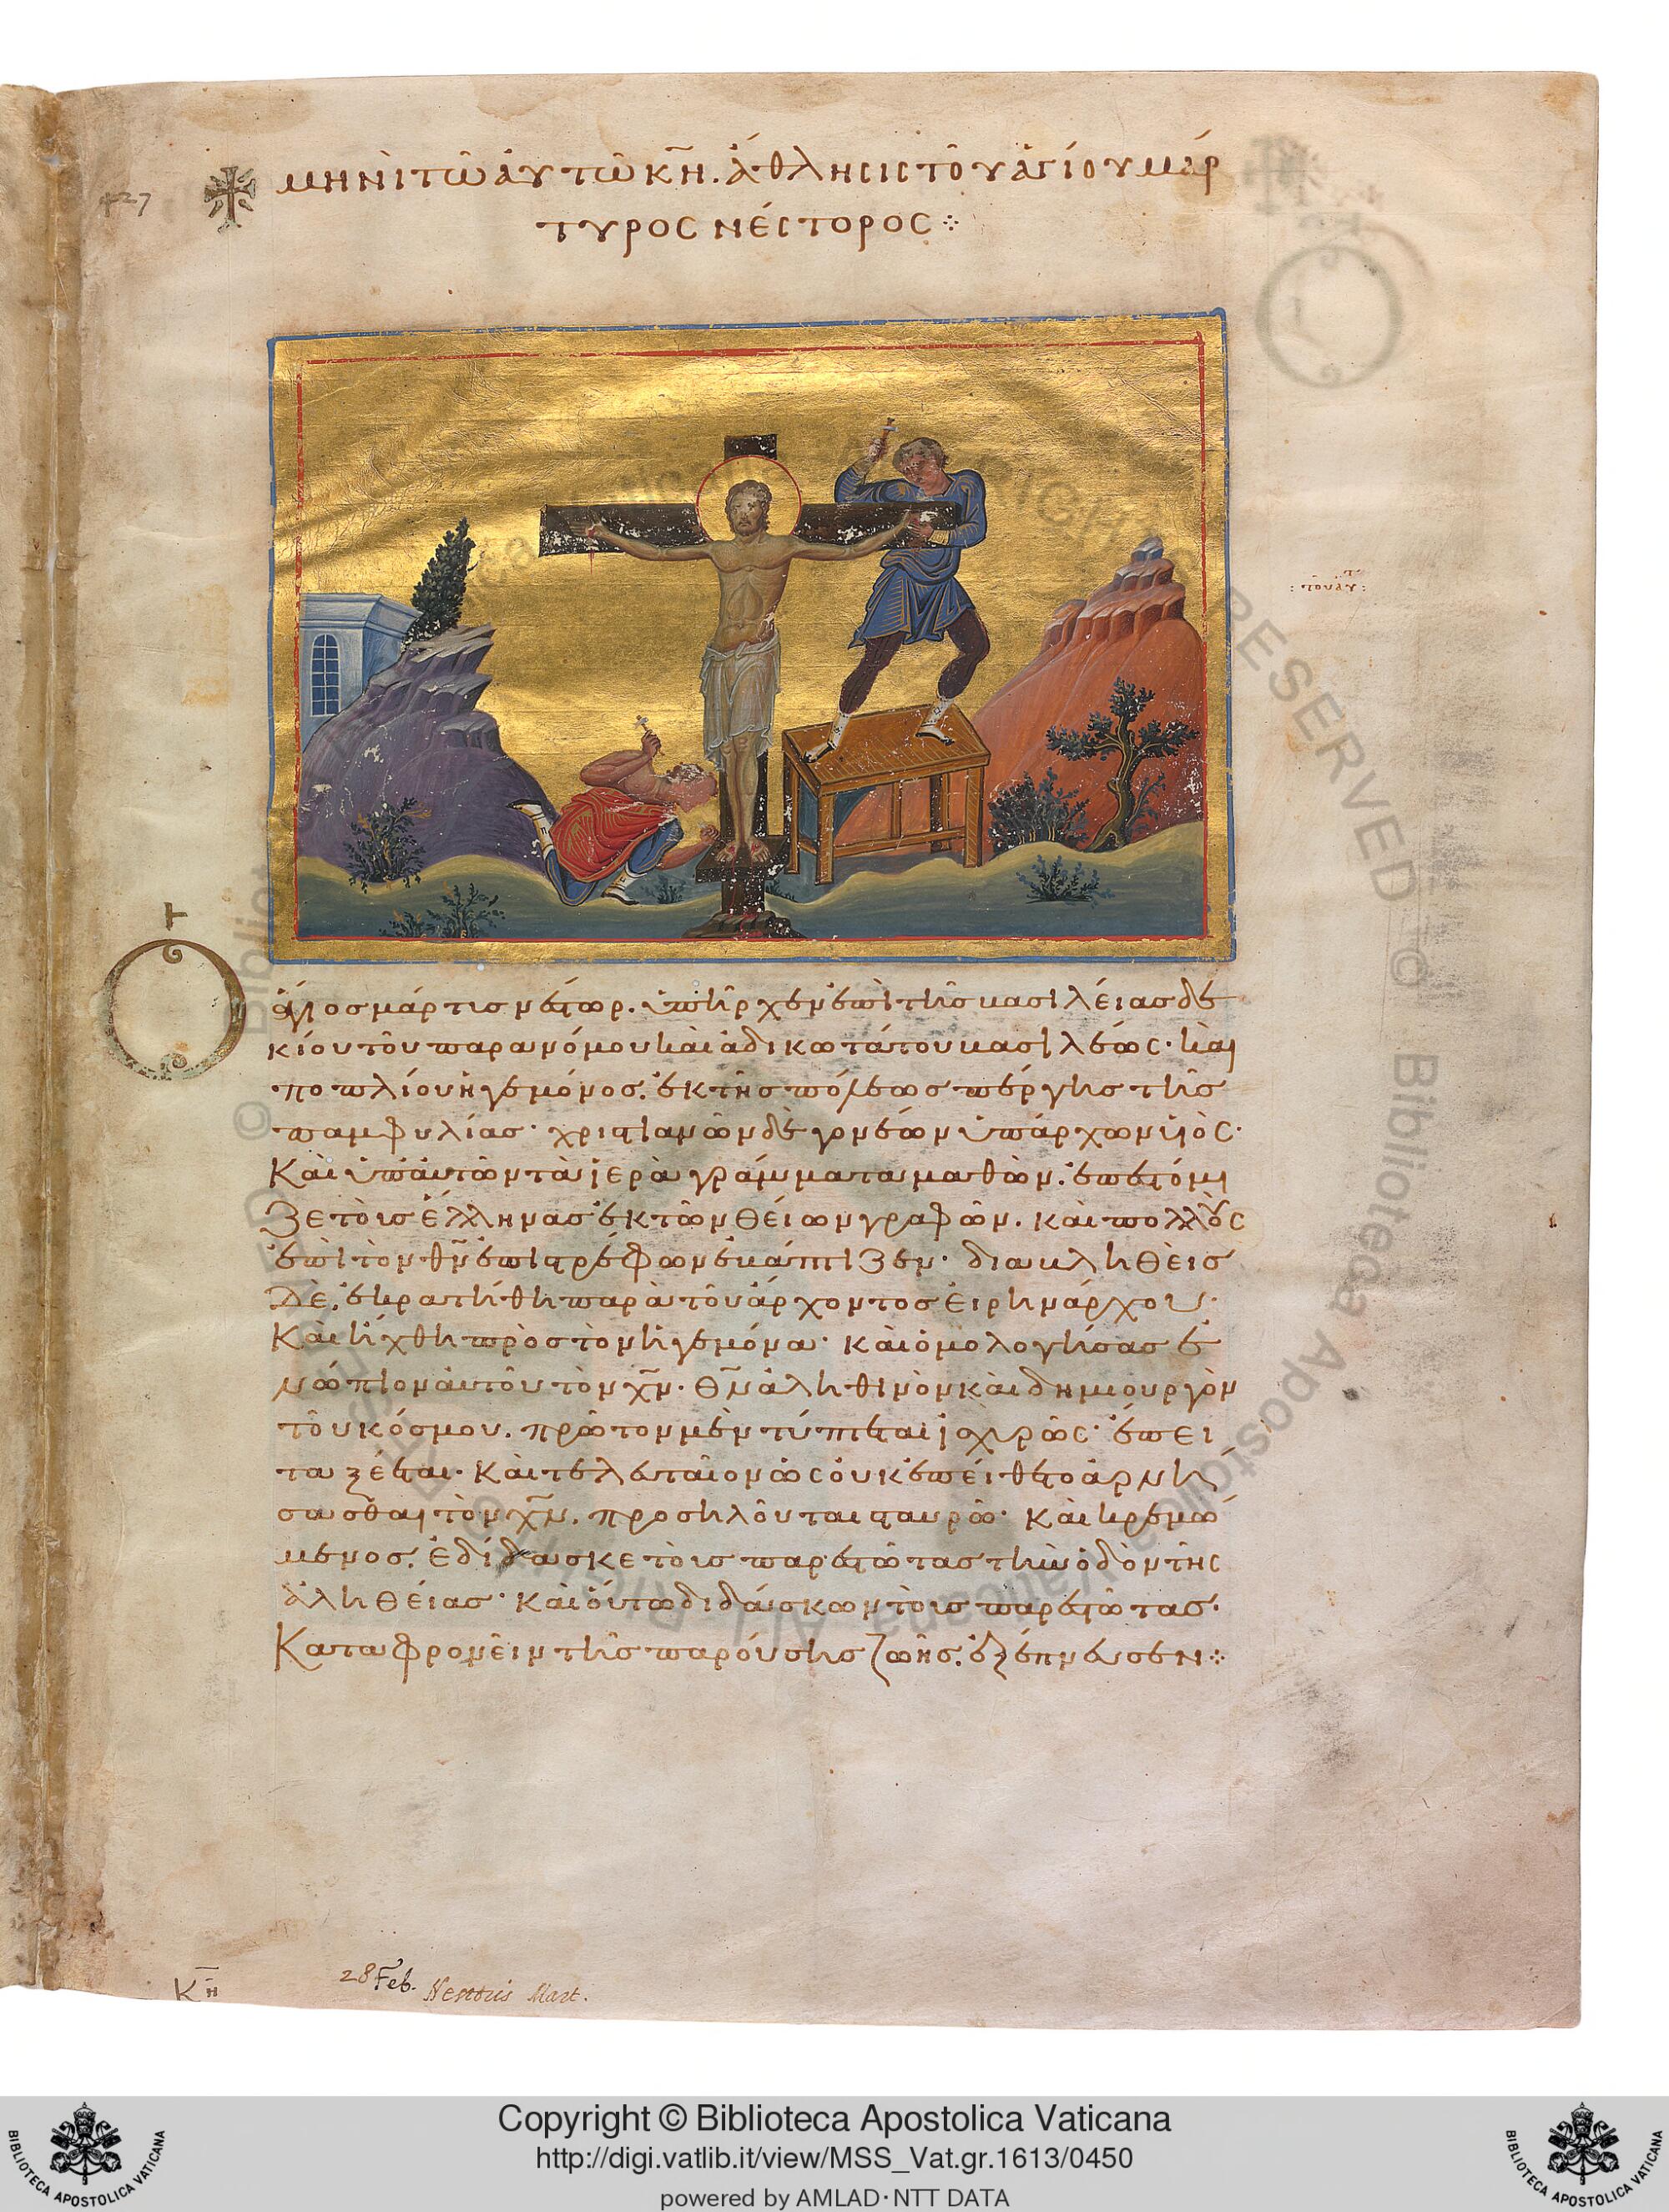 427
μηνὶ τῶ αὐτῶ κη̄. ἄθλησις τοῦ ἁγίου μάρ
τυρος νέστορος ⁘
Ὁ ἅγιος μάρτυς νέστωρ. ὑπῆρχεν ἐπὶ τῆς βασιλείας δε
κίου τοῦ παρανόμου καὶ ἀδικωτάτου βασιλέως· καὶ
ποπλίου ἡγεμόνος. ἐκ τῆς πόλεως πέργης τῆς
παμφυλίας· χριστιανῶν δὲ γονέων ὑπάρχων υἱὸς·
Καὶ ὑπ' αὐτῶν τὰ ἱερὰ γράμματα μαθὼν. ἐπεστόμι
ζε τοὺς ἕλληνας ἐκ τῶν θείων γραφῶν. καὶ πολλοὺς
ἐπὶ τὸν θ̄ν ἐπιστρέφων ἐβάπτιζεν· διαβληθεὶς
δὲ, ἐκρατήθη παρὰ τοῦ ἄρχοντος εἰρηνάρχου·
Καὶ ἤχθη πρὸς τὸν ἡγεμόνα· καὶ ὁμολογήσας ἐ
νώπιον αὐτοῦ τὸν χ̄ν. θ̄ν ἀληθινὸν καὶ δημιουργὸν
τοῦ κόσμου. πρῶτον μὲν τύπτεται ἰσχυρῶς· ἔπει
τα ξέεται· καὶ τελευταῖον ὡς οὐκ ἐπείθετο ἀρνή
σασθαι τὸν χ̄ν. προσηλοῦται σταυρῶ· καὶ κρεμώ
μενος. ἐδίδασκε τοὺς παρεστῶτας τὴν ὁδὸν τῆς
ἀληθείας· καὶ οὕτω διδάσκων τοὺς παρεστῶτας.
Καταφρονεῖν τῆς παρούσης ζωῆς. ἐξέπνευσεν ⁘
κη̄
28 Feb. Nestoris Mart.
© Biblioteca Apostolica Vaticana ALL RIGHTS RESERVED
BIBLIOTECA APOSTOLICA VATICANA
Copyright © Biblioteca Apostolica Vaticana
http://digi.vatlib.it/view/MSS_Vat.gr.1613/0450
powered by AMLAD·NTT DATA
BIBLIOTECA APOSTOLICA VATICANA